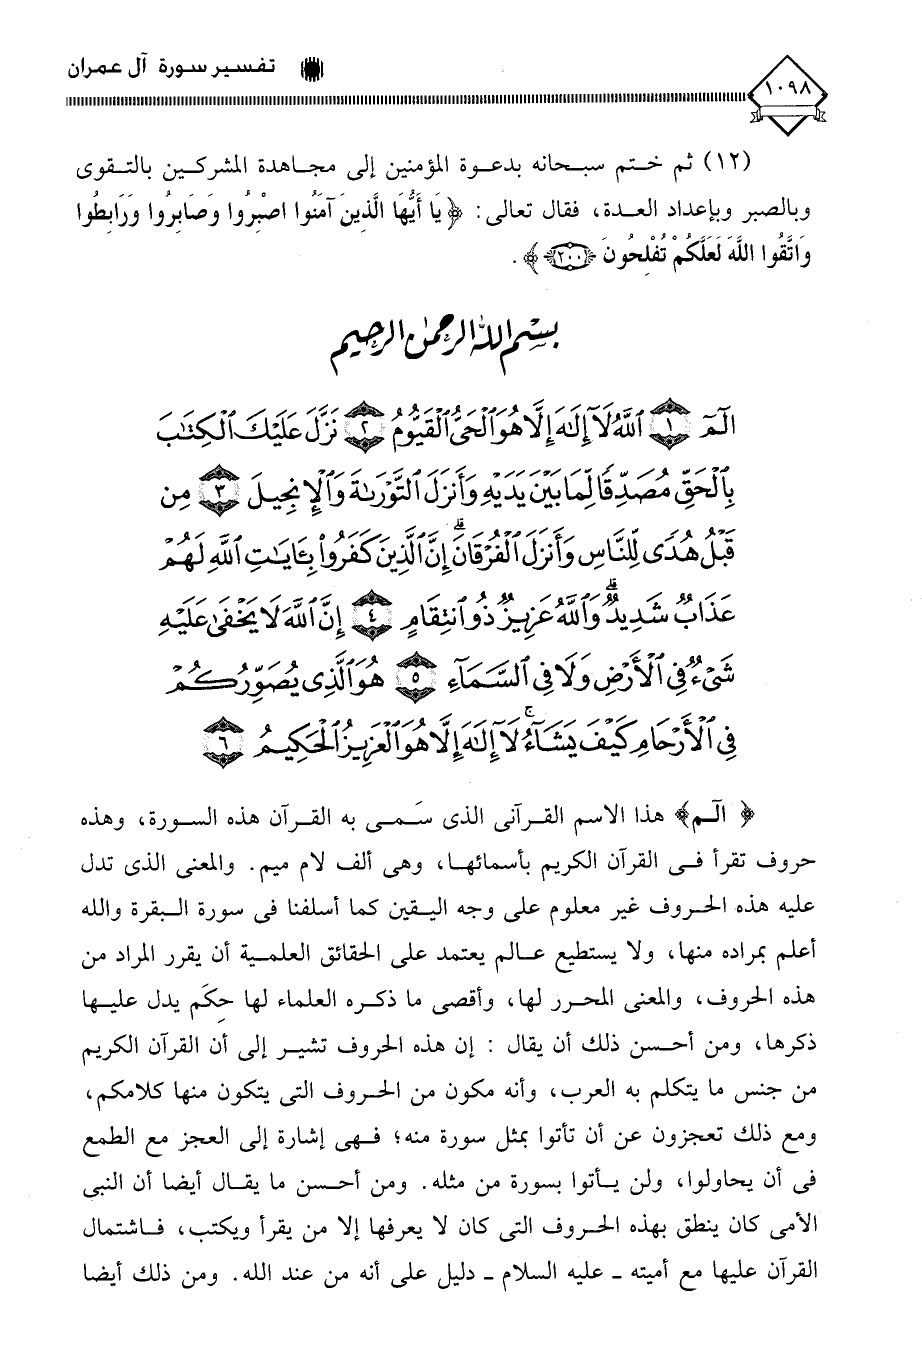 تفسير سورة آل عمران
١٠٩٨
(١٢) ثم ختم سبحانه بدعوة المؤمنين إلى مجاهدة المشركين بالتقوى
وبالصبر وبإعداد العدة، فقال تعالى: ﴿يَا أَيُّهَا الَّذِينَ آمَنُوا اصْبِرُوا وَصَابِرُوا وَرَابِطُوا
وَاتَّقُوا اللَّهَ لَعَلَّكُمْ تُفْلِحُونَ (٢٠٠)﴾.
بسم الله الرحمن الرحيم
الٓمٓ ١ ٱللَّهُ لَآ إِلَٰهَ إِلَّا هُوَ ٱلْحَىُّ ٱلْقَيُّومُ ٢ نَزَّلَ عَلَيْكَ ٱلْكِتَٰبَ
بِٱلْحَقِّ مُصَدِّقًا لِّمَا بَيْنَ يَدَيْهِ وَأَنزَلَ ٱلتَّوْرَىٰةَ وَٱلْإِنجِيلَ ٣ مِن
قَبْلُ هُدًى لِّلنَّاسِ وَأَنزَلَ ٱلْفُرْقَانَۗ إِنَّ ٱلَّذِينَ كَفَرُوا۟ بِـَٔايَٰتِ ٱللَّهِ لَهُمْ
عَذَابٌ شَدِيدٌۗ وَٱللَّهُ عَزِيزٌ ذُو ٱنتِقَامٍ ٤ إِنَّ ٱللَّهَ لَا يَخْفَىٰ عَلَيْهِ
شَىْءٌ فِى ٱلْأَرْضِ وَلَا فِى ٱلسَّمَآءِ ٥ هُوَ ٱلَّذِى يُصَوِّرُكُمْ
فِى ٱلْأَرْحَامِ كَيْفَ يَشَآءُۚ لَآ إِلَٰهَ إِلَّا هُوَ ٱلْعَزِيزُ ٱلْحَكِيمُ ٦
﴿الٓـم﴾ هذا الاسم القرآنى الذى سَمى به القرآن هذه السورة، وهذه
حروف تقرأ فى القرآن الكريم بأسمائها، وهى ألف لام ميم. والمعنى الذى تدل
عليه هذه الحروف غير معلوم على وجه اليقين كما أسلفنا فى سورة البقرة والله
أعلم بمراده منها، ولا يستطيع عالم يعتمد على الحقائق العلمية أن يقرر المراد من
هذه الحروف، والمعنى المحرر لها، وأقصى ما ذكره العلماء لها حِكَم يدل عليها
ذكرها، ومن أحسن ذلك أن يقال : إن هذه الحروف تشير إلى أن القرآن الكريم
من جنس ما يتكلم به العرب، وأنه مكون من الحروف التى يتكون منها كلامكم،
ومع ذلك تعجزون عن أن تأتوا بمثل سورة منه؛ فهى إشارة إلى العجز مع الطمع
فى أن يحاولوا، ولن يأتوا بسورة من مثله. ومن أحسن ما يقال أيضا أن النبى
الأمى كان ينطق بهذه الحروف التى كان لا يعرفها إلا من يقرأ ويكتب، فاشتمال
القرآن عليها مع أميته - عليه السلام - دليل على أنه من عند الله. ومن ذلك أيضا